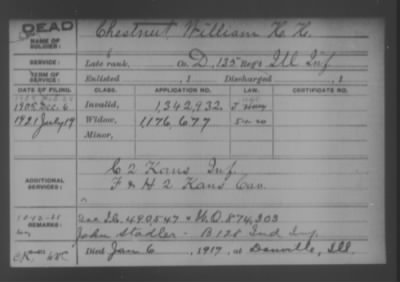 DEAD
NAME OF SOLDIER:
Chestnut William H. H.
SERVICE:
Late rank, Co. D, 135 Reg't Ill Inf
TERM OF SERVICE:
Enlisted , 1 Discharged , 1
DATE OF FILING. CLASS. APPLICATION NO. LAW. CERTIFICATE NO.
1905 Dec. 6 Invalid, 1,342,932.
1921 July 19 Widow, 1,176,677
Minor,
ADDITIONAL SERVICES:
C 2 Kans Inf.
F & H 2 Kans Cav.
REMARKS:
26,490,547 874,303
John Stadler - B 128 Ind Inf.
Died Jan 6, 1917, at Danville, Ill.